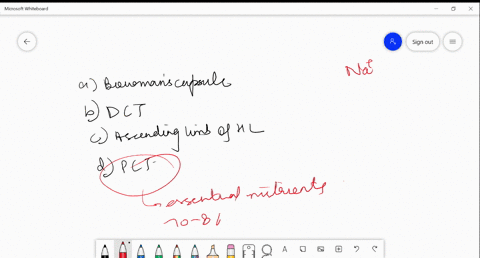 Microsoft Whiteboard
Sign out
Na+
a) Bowman's capsule
b) DCT
c) Ascending limb of HL
d) PCT
essential nutrients
70-8